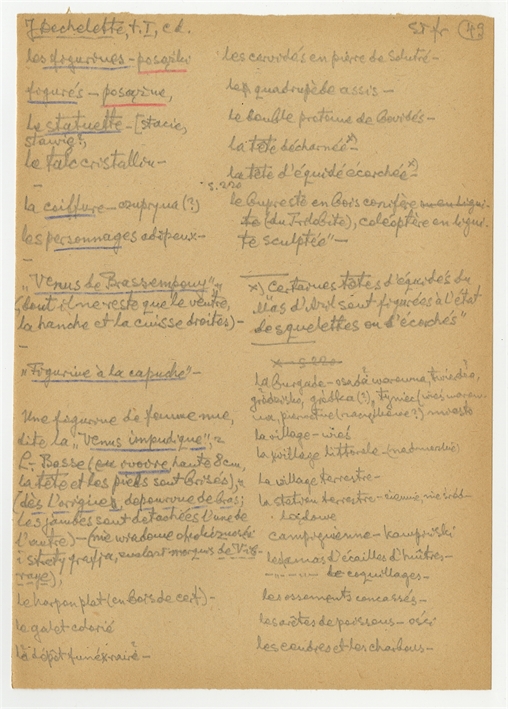 J. Dechelette, t. I, c.d. 55 fr (49)
les figurines – posążki
figurés – posążene,
La statuette – [stacie,
stawiq?,
le talc cristallin –
–
la coiffure – (?)
les personnages adipeux –
–
„Venus de Brassempouy”,
(dont il ne reste que le ventre,
la hanche et la cuisse droites) –
–
„Figurine à la capuche” –
Une figurine de femme nue,
dite la „Venus impudique”, =
L. Basse (en ivoire, haute 8 cm,
la tête et les pieds sont brisés),
(dès l'origine, dépourvue de bras;
les jambes sont détachées l'une de
l'autre) – (nie wiadomo
i marquis de Vib-
raye),
le harpon plat (en bois de cerf) –
le galet colorié
le dépôt funéraire –
les cervidés en pierre de Solutré –
le quadrupède assis –
le double protome de Bovidés –
la tête décharnée x)
la tête d'équidé écorchée x)
s. 220
le bupreste en bois conifère
te (du Trilobite), coléoptère en ligni-
te sculptée” –
x) Certaines têtes d'équidés du
Mas d'Azil sont figurées à l'état
de squelettes ou d'écorchés”
x – s 220
la burgade – osada warowna, twierdza,
gródek (?),
miasto
la village – wieś
la village littorale – (nadmorski)
la village terrestre –
la station terrestre –
lądowe
campignienne – kampiński
les amas d'écailles d'huîtres –
– " – " – de coquillages –
les ossements concassés –
les arêtes de poissons – ości
les cendres et les charbons –